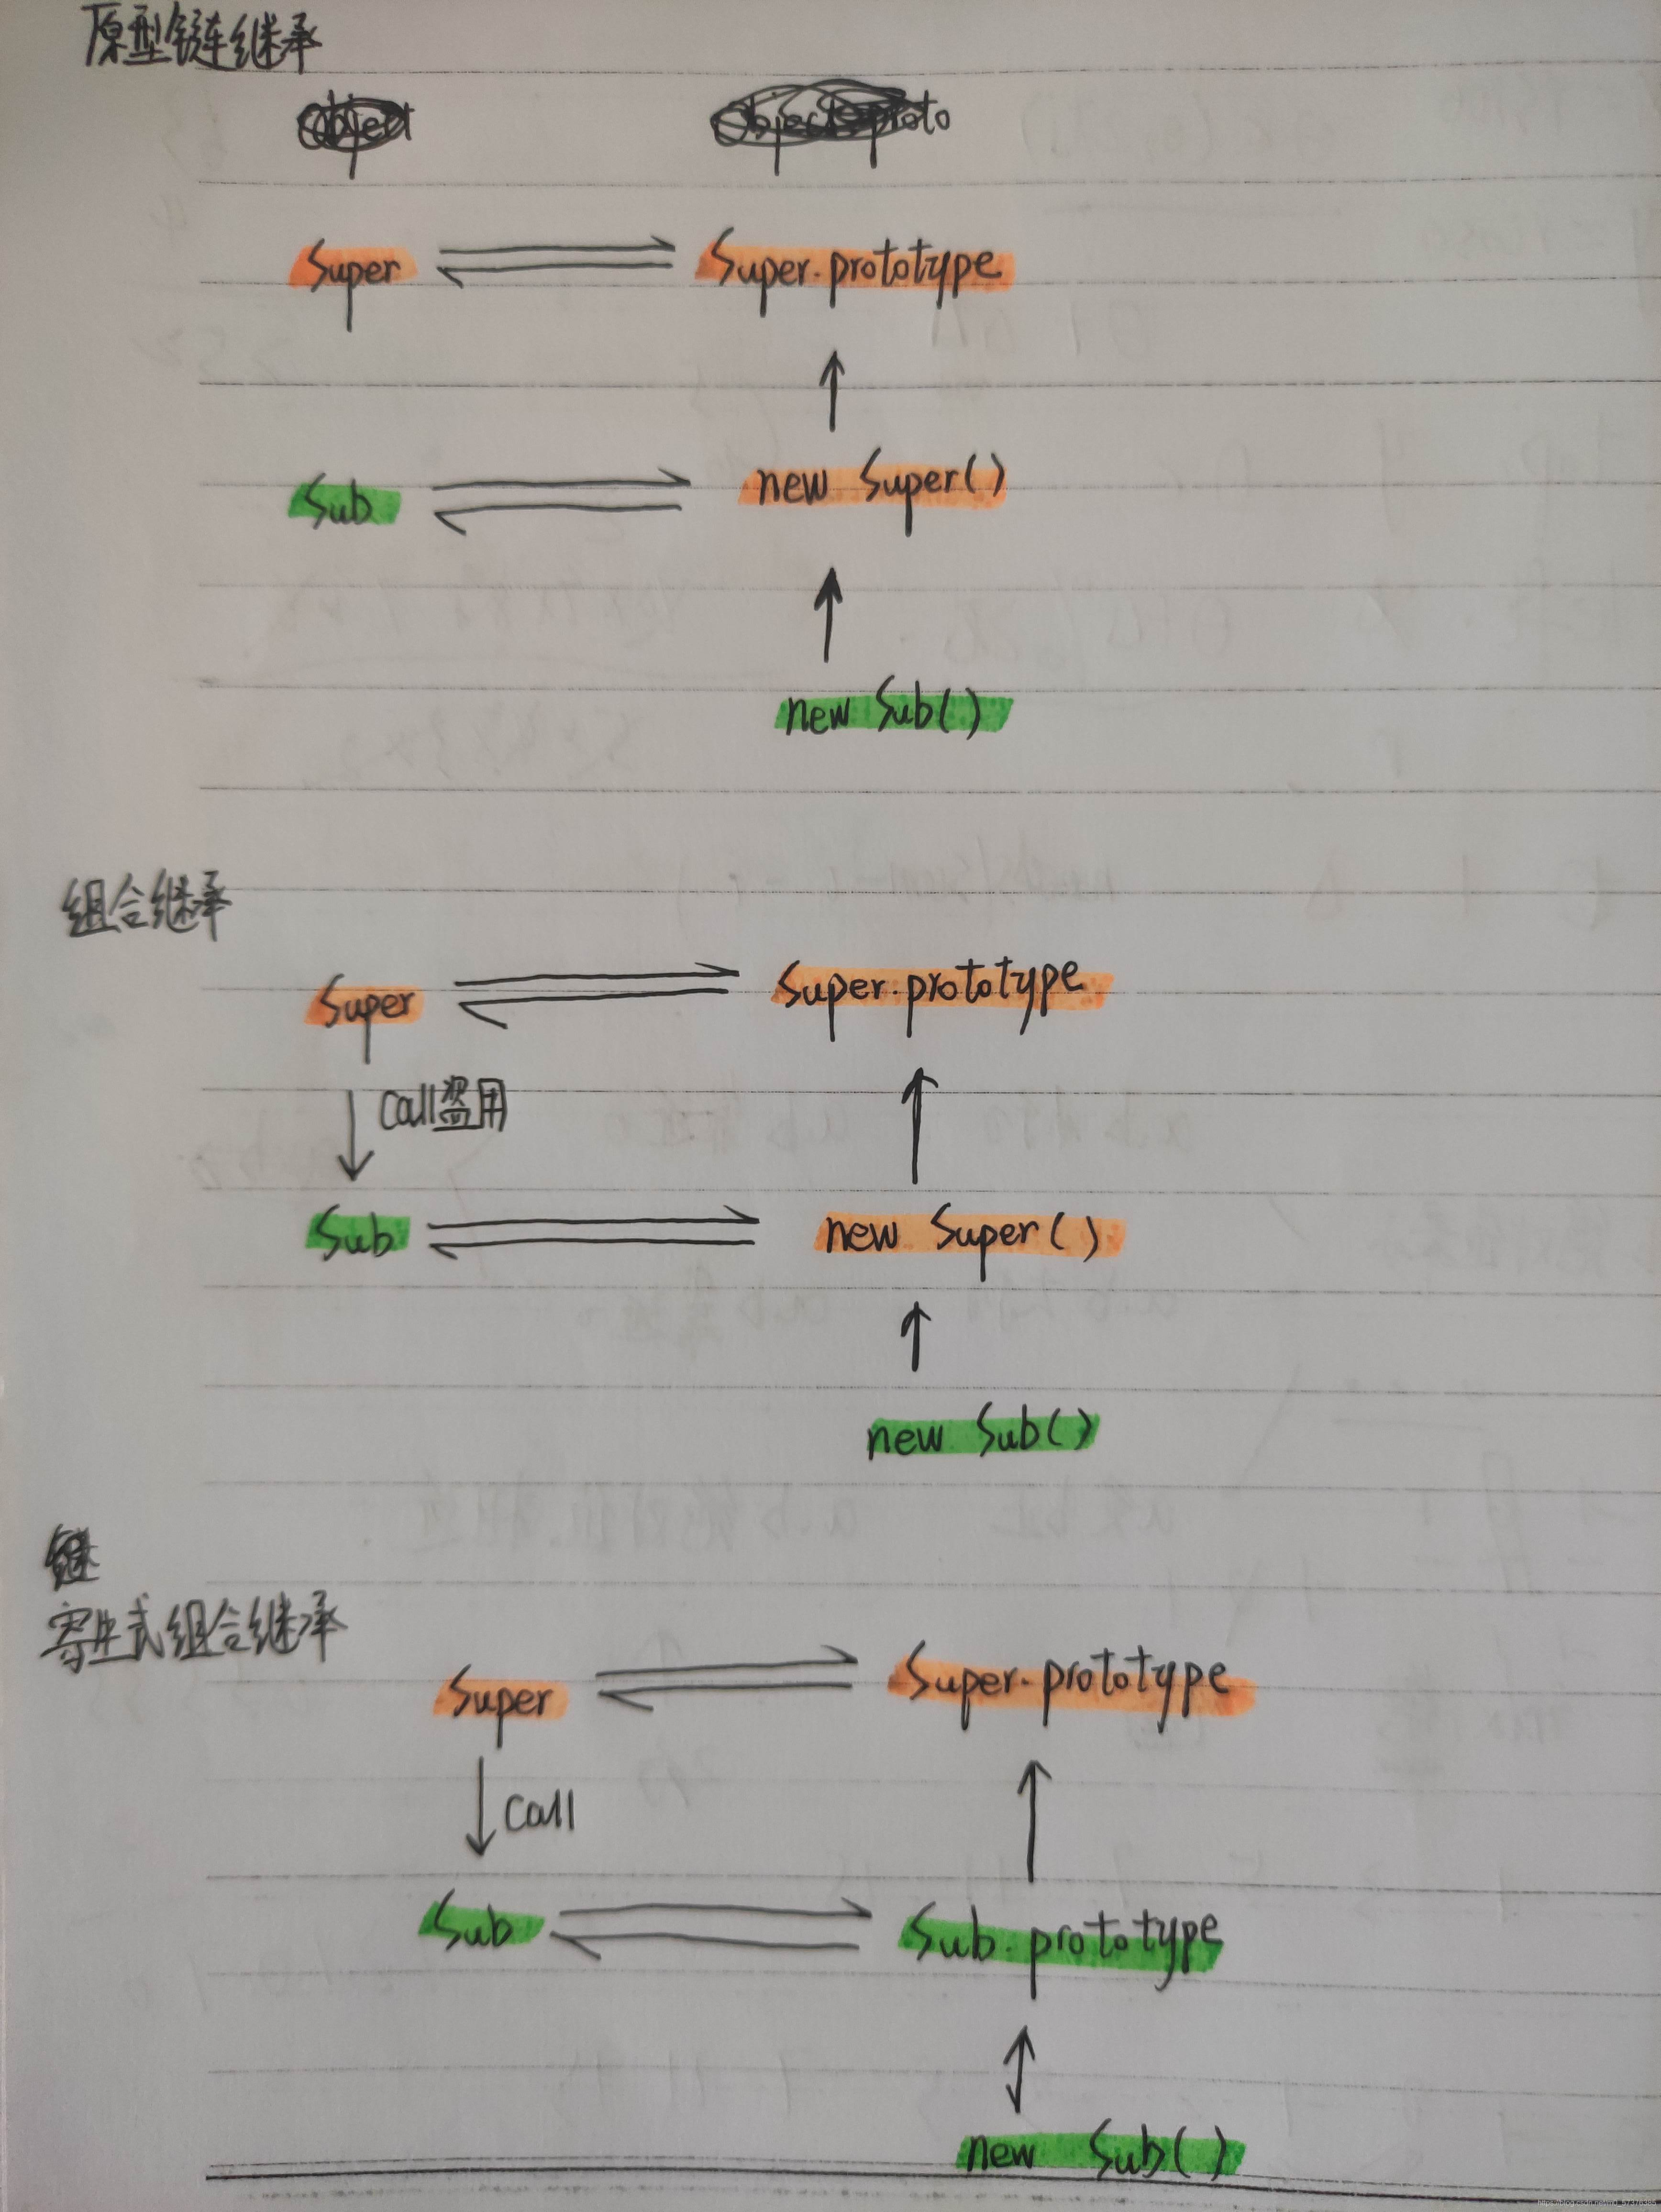 原型链继承
Super Super.prototype
Sub new Super()
new Sub()
组合继承
Super Super.prototype
call盗用
Sub new Super()
new Sub()
寄生式组合继承
Super Super.prototype
call
Sub Sub.prototype
new Sub()